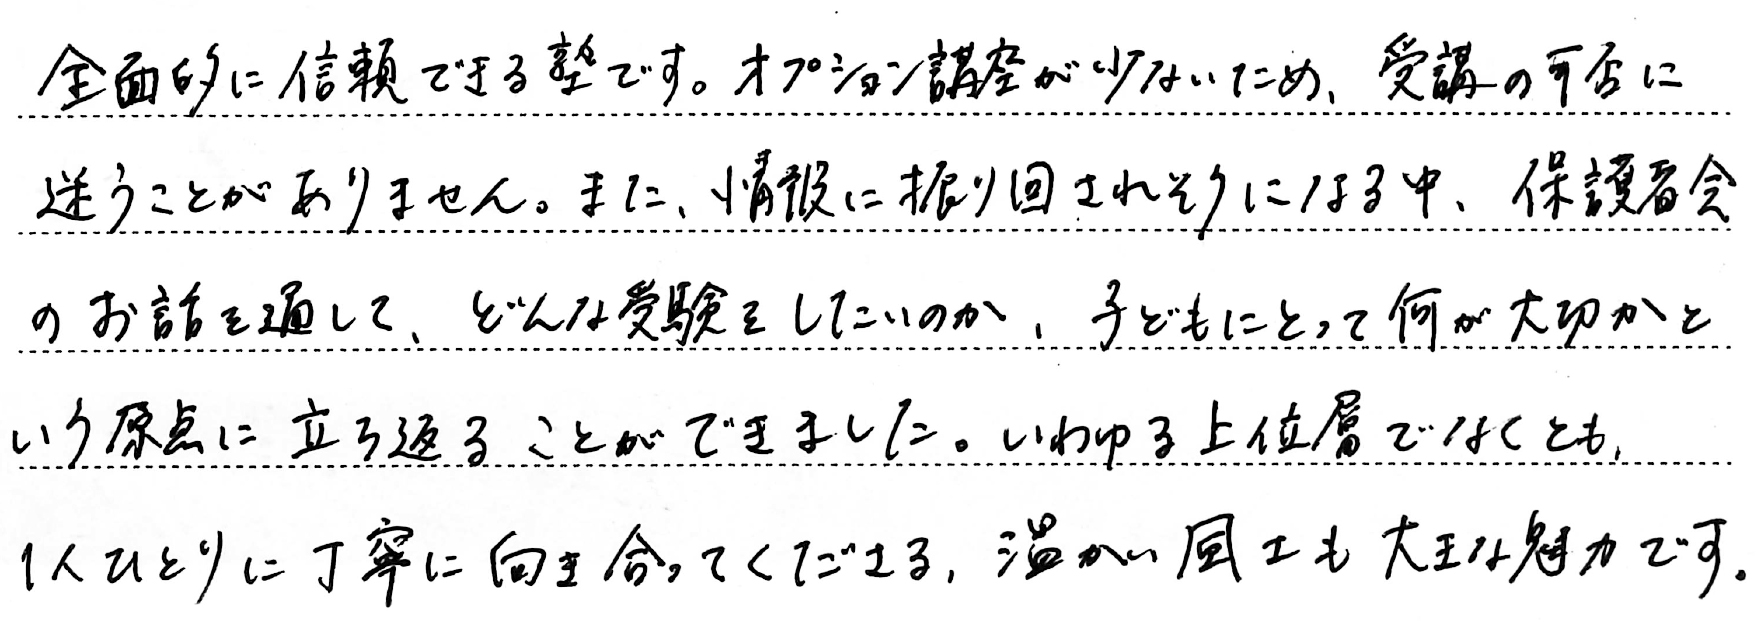 全面的に信頼できる塾です。オプション講座が少ないため、受講の可否に
迷うことがありません。また、情報に振り回されそうになる中、保護者会
のお話を通して、どんな受験をしたいのか、子どもにとって何が大切かと
いう原点に立ち返ることができました。いわゆる上位層でなくとも、
1人ひとりに丁寧に向き合ってくださる、温かい風土も大きな魅力です。